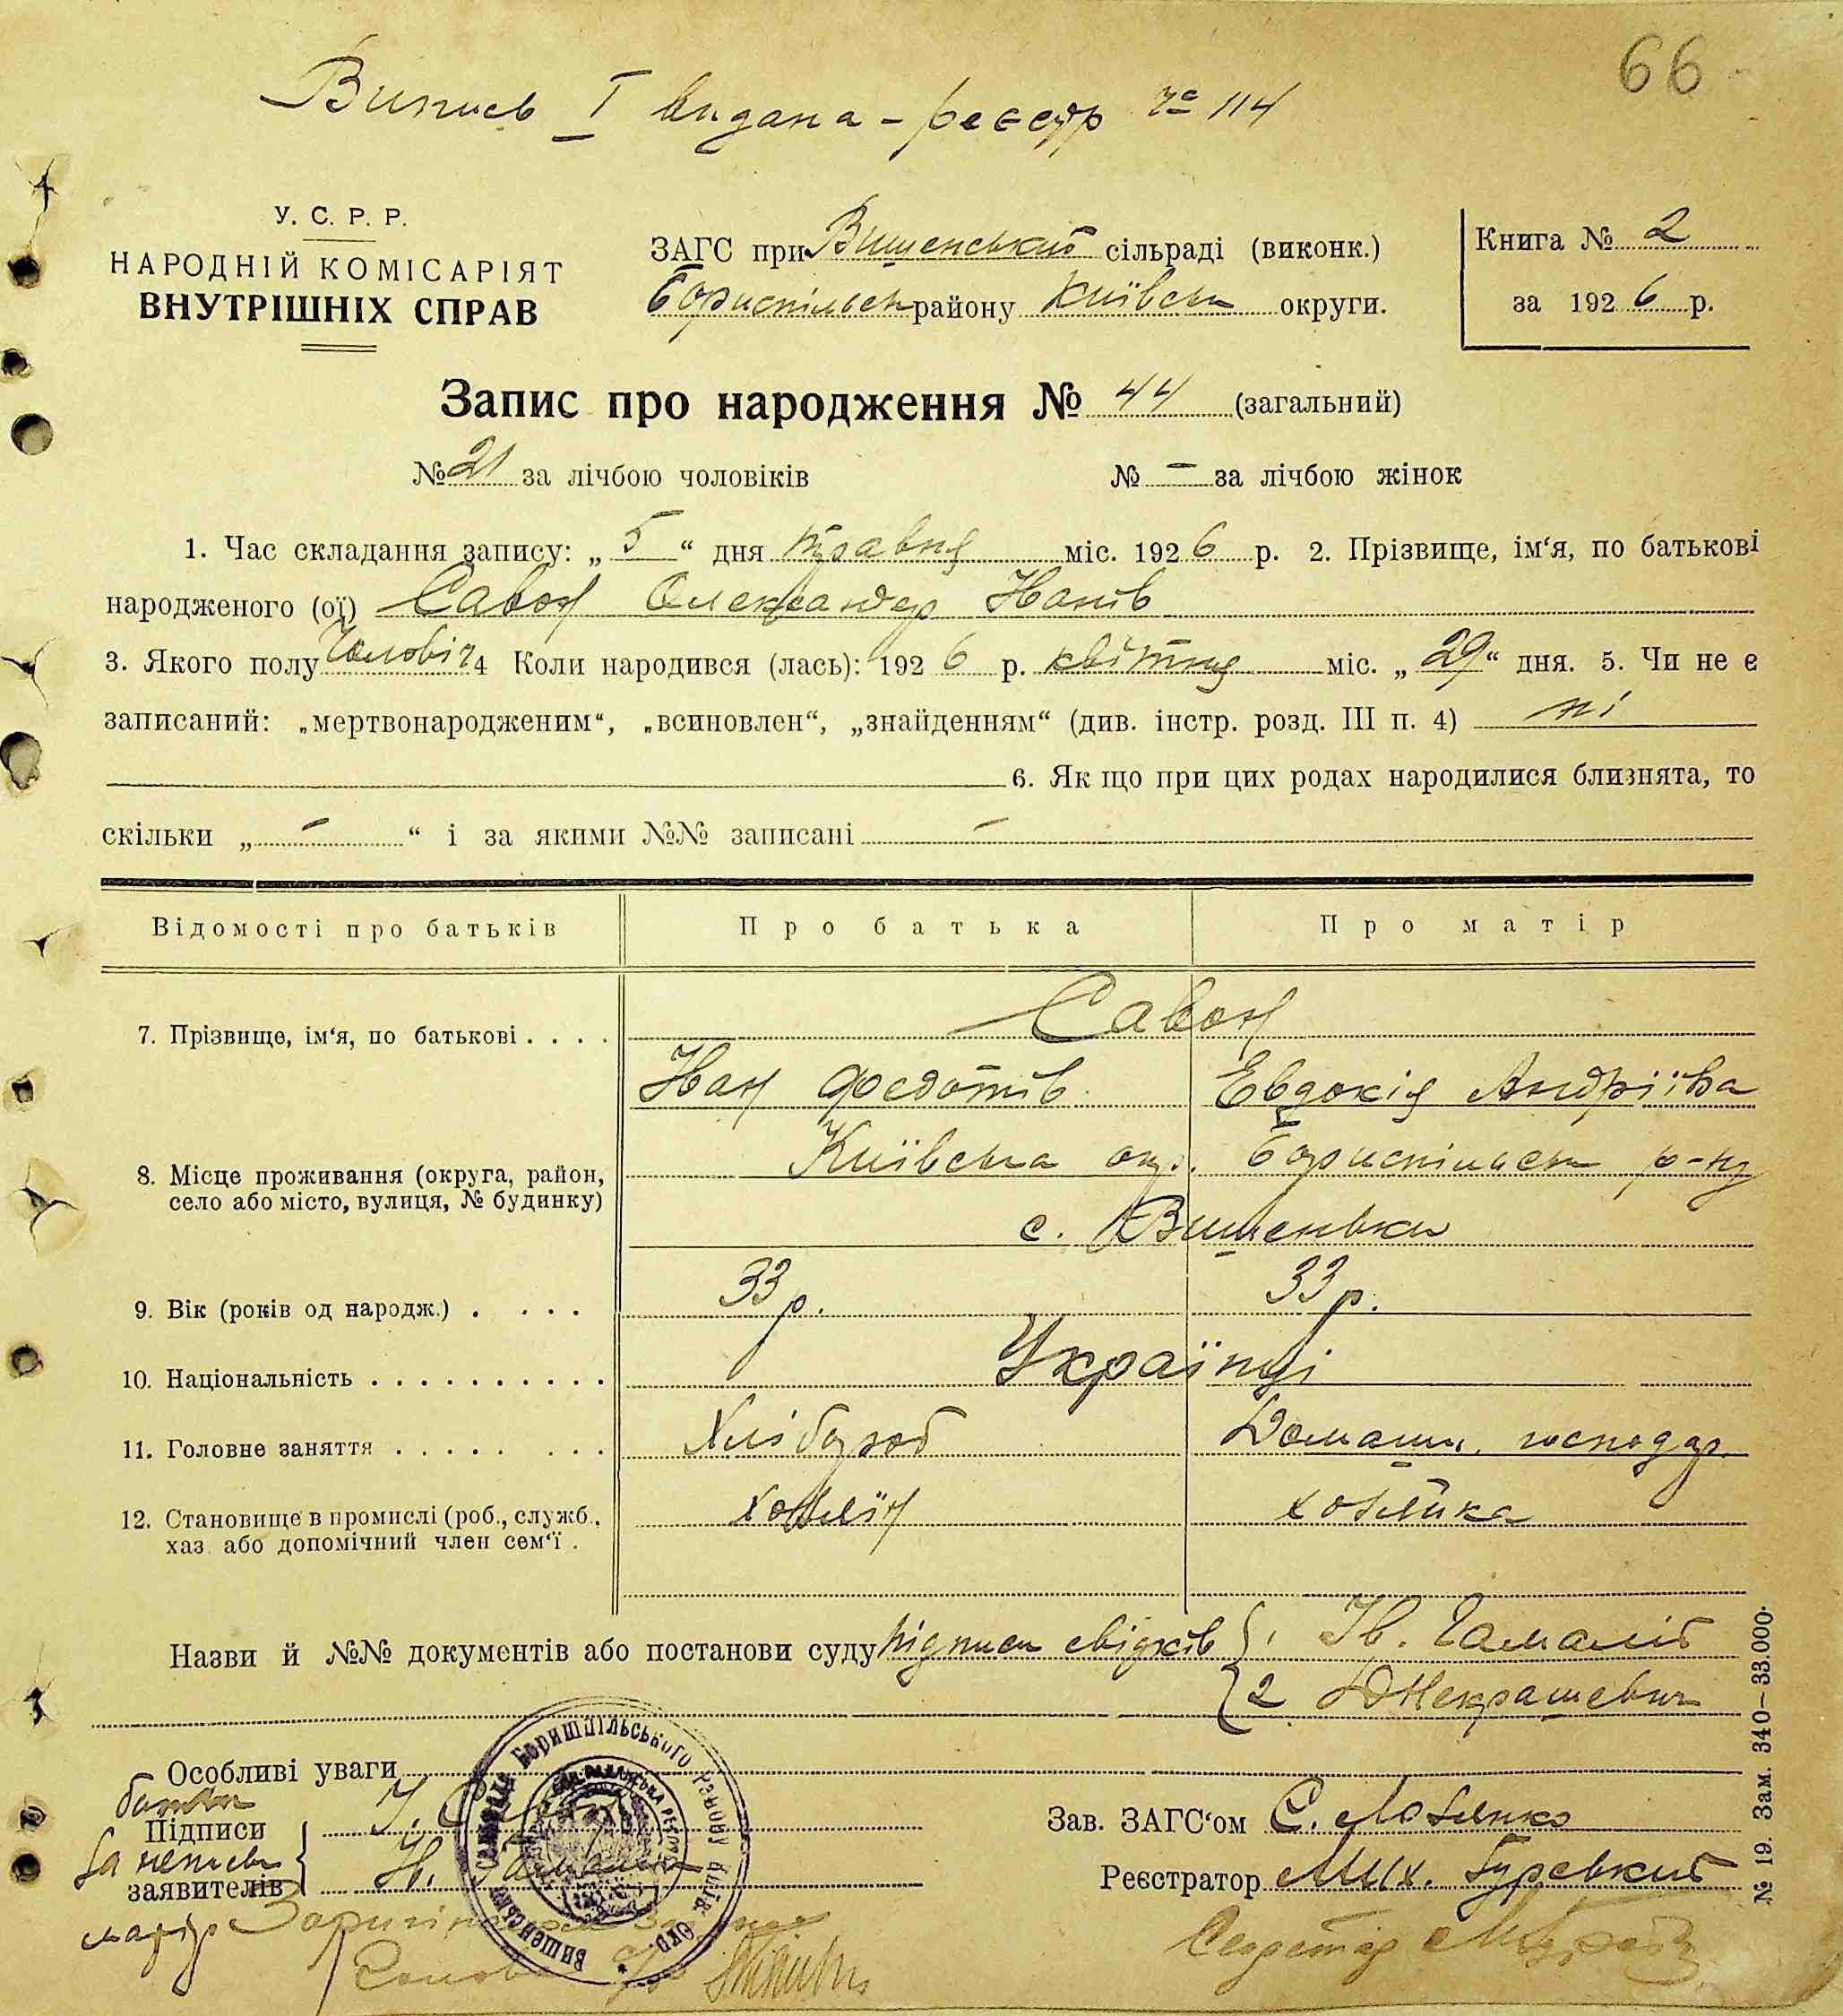 66
Випись I видана - реєстр № 114
У. С. Р. Р.
НАРОДНІЙ КОМІСАРІЯТ
ВНУТРІШНІХ СПРАВ
ЗАГС при Вишенській сільраді (виконк.)
Бориспільськ району Київськ округи.
Книга № 2
за 1926 р.
Запис про народження № 44 (загальний)
№ 21 за лічбою чоловіків № – за лічбою жінок
1. Час складання запису: „5“ дня травня міс. 1926 р. 2. Прізвище, ім‘я, по батькові
народженого (ої) Савон Олександер Нонів
3. Якого полу Чоловіч 4 Коли народився (лась): 1926 р. квітня міс. „29“ дня. 5. Чи не є
записаний: „мертвонародженим“, „всиновлен“, „знайденням“ (див. інстр. розд. III п. 4) ні
6. Як що при цих родах народилися близнята, то
скільки „ – “ і за якими №№ записані –
Відомості про батьків Про батька Про матір
7. Прізвище, ім‘я, по батькові . . . . Савон
Нон Федотів Евдокія Андріївна
8. Місце проживання (округа, район, Київська окр. Бориспільськ р-ну
село або місто, вулиця, № будинку)
с. Вишеньки
9. Вік (років од народж.) . . . . 33 р. 33 р.
10. Національність . . . . . . . . . . Українці
11. Головне заняття . . . . . . . . Хлібороб Домашн. господар.
12. Становище в промислі (роб., служб., хозяїн хозяйка
хаз або допомічний член сем‘ї .
Назви й №№ документів або постанови суду підписи свідків 1 Ів. Гамалій
2 Д Некрашевич
Особливі уваги
батьки
Підписи
за неписьм
заявителів
матір
Н. Гамалій
Зав. ЗАГС‘ом С. Лозенко
Реєстратор Мих. Гуревкий
Секретар
№ 19. Зам. 340–33.000.
Вишенська сільрада Боришпільського району Київ. окр.